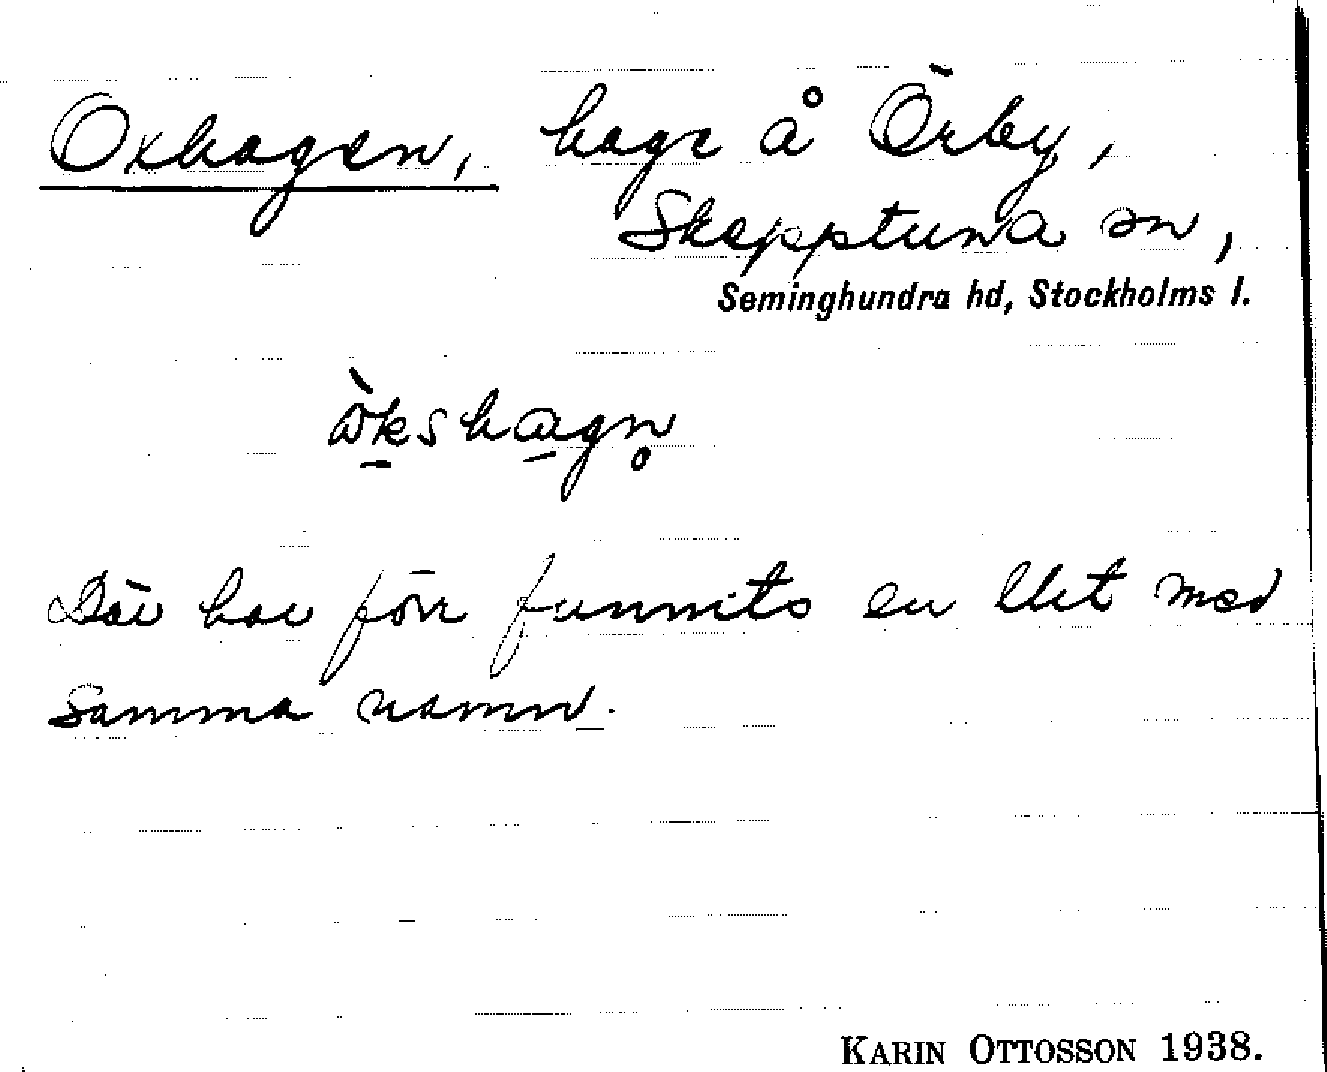 Oxhagen, hage å Örby,
Skepptuna sn,
Seminghundra hd, Stockholms l.
Där har förr funnits en litet med
samma namn.
KARIN OTTOSSON 1938.